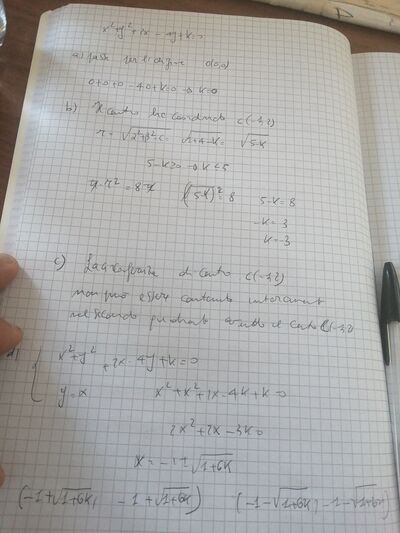 x²+y²+2x-4y+k=0
a) passa per l'origine O(0,0)
0+0+0-4·0+k=0 → k=0
b) Il centro ha coordinate C(-1;2)
r=√α²+β²-c = √1+4-k = √5-k
5-k≥0 → k≤5
r² = 8 (√5-k)² = 8 5-k=8
-k=3
k=-3
c) La circonferenza di centro C(-1;2)
non può essere contenuta interamente
nel secondo quadrante il centro C(-1;2)
d) { x²+y²+2x-4y+k=0
y=x x²+x²+2x-4x+k=0
2x²+2x-3k=0
x=-1±√1+6k
(-1+√1+6k, -1+√1+6k) (-1-√1+6k, -1-√1+6k)